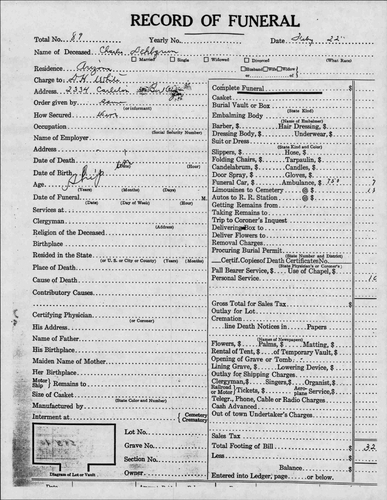 RECORD OF FUNERAL
Total No. 89 Yearly No. Date July 22
Name of Deceased Charles
Married Single Widowed Divorced (What Race)
Residence Arizona Husband Wife Widow of
Charge to White
Address 2334 Carleton
Order given by Same (or informant)
How Secured
Occupation (Social Security Number)
Name of Employer
Address
Date of Death (Hour)
Date of Birth
Age (Years) (Months) (Days)
Ship
Date of Funeral (Date) (Day of Week) (Hour) M.
Services at
Clergyman (Address)
Religion of the Deceased
Birthplace
Resided in the State (or U. S. or City or County) (Years) (Months)
Place of Death
Cause of Death
Contributory Causes
Certifying Physician (or Coroner)
His Address
Name of Father
His Birthplace
Maiden Name of Mother
Her Birthplace
Motor Ship Remains to
Size of Casket (State Color and Number)
Manufactured by
Interment at Cemetery Crematory
Lot No.
Grave No.
Section No.
Owner
Diagram of Lot or Vault
Complete Funeral $
Casket
Burial Vault or Box (State Kind)
Embalming Body (Name of Embalmer)
Barber, $ Hair Dressing, $
Dressing Body, $ Underwear, $
Suit or Dress (State Kind and Color)
Slippers, $ Hose, $
Folding Chairs, $ Tarpaulin, $
Candelabrum, $ Candles, $
Door Spray, $ Gloves, $
Funeral Car, $ Ambulance, $ 750 7
Limousines to Cemetery @ $
Autos to R. R. Station @ $
Getting Remains from
Taking Remains to
Trip to Coroner's Inquest
Delivering Box to
Deliver Flowers to
Removal Charges (State Number and District)
Procuring Burial Permit
Certif. Copies of Death Certificates No.
(State Physician's or Coroner's)
Pall Bearer Service, $ Use of Chapel, $
Gross Total for Sales Tax $
Outlay for Lot
Cremation
line Death Notices in Papers
(Names of Newspapers)
Flowers, $ Palms, $ Matting, $
Rental of Tent, $ of Temporary Vault, $
Opening of Grave or Tomb
Lining Grave, $ Lowering Device, $
Outlay for Shipping Charges
Clergyman, $ Singers, $ Organist, $
Railroad or Motor Tickets, $ Aeroplane Service, $
Telegr., Phone, Cable or Radio Charges
Cash Advanced
Out of town Undertaker's Charges
Sales Tax
Total Footing of Bill $ 32
Less
Balance $
Entered into Ledger, page or below.